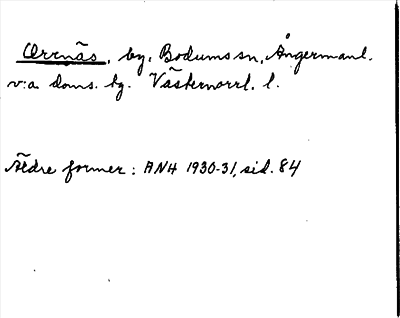 Orrnäs, by, Bodums sn, Ångermanl.
v:a doms. hg. Västernorrl. l.
Äldre former: ANH 1930-31, sid. 84